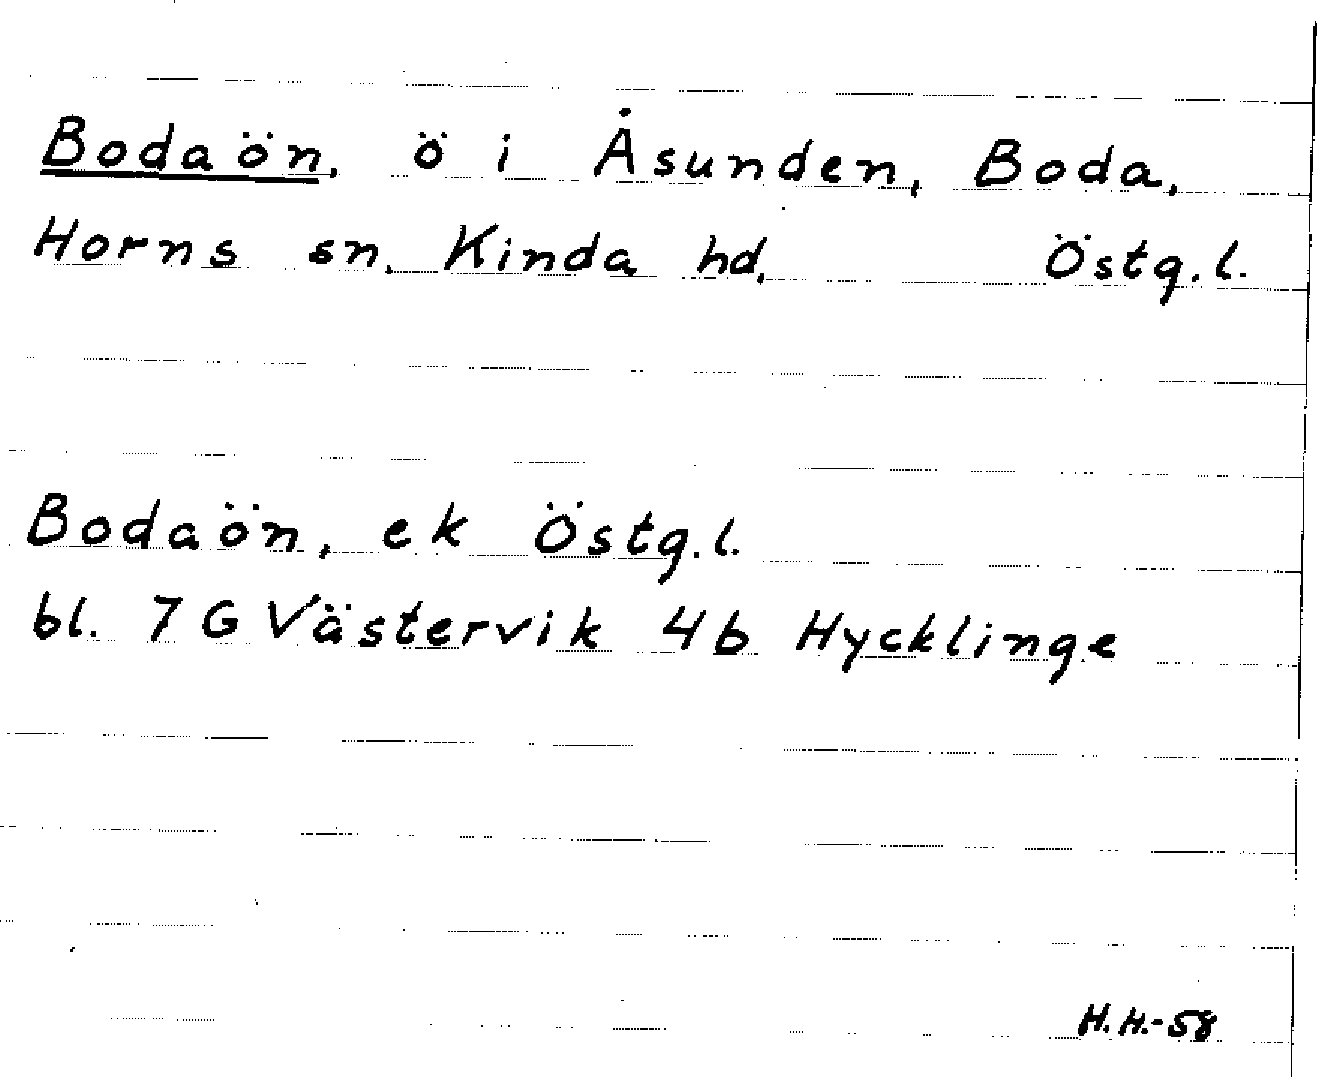 Bodaön, ö i Åsunden, Boda,
Horns sn, Kinda hd, Östg.l.
Bodaön, ek Östg.l.
bl. 7 G Västervik 4b Hycklinge
H.H.-58